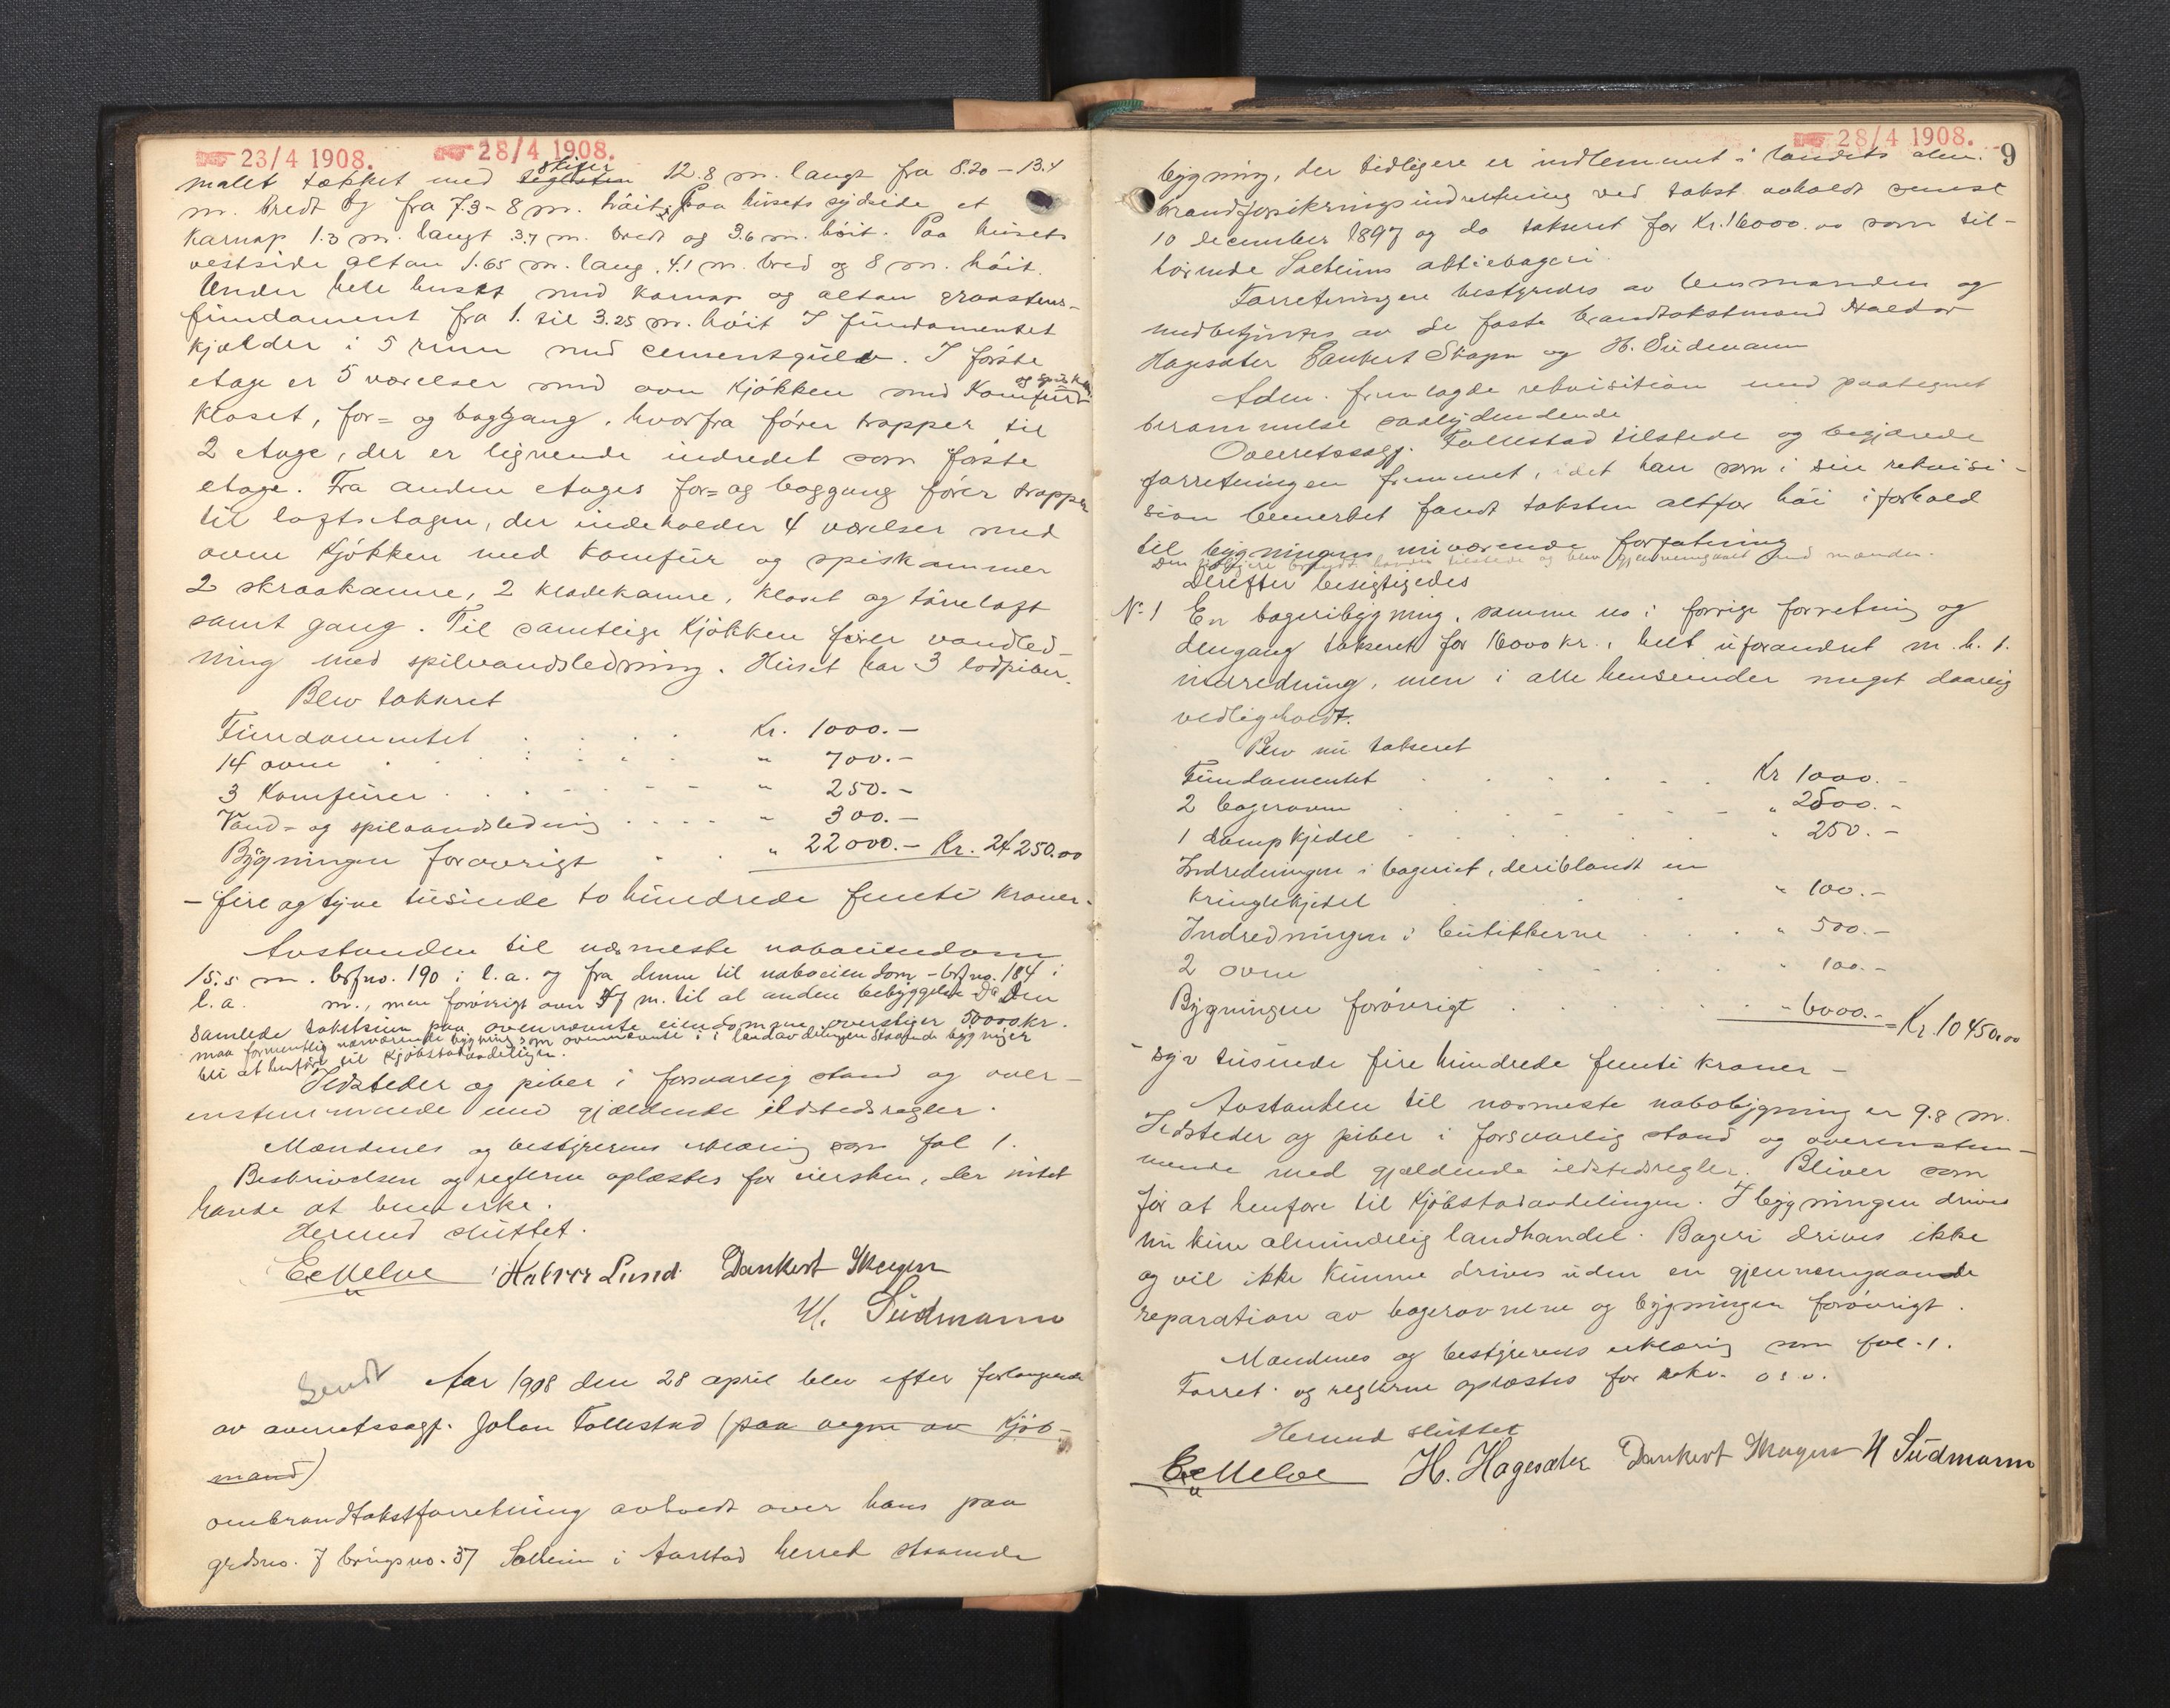 23/4 1908. 28/4 1908.
malet tækket med skifer teglsten 12.8 m. langt fra 8.20 – 13.4
m. bredt og fra 7.3 – 8 m. høit, Paa husets sydside et
karnap 1.3 m. langt 3.7 m. bredt og 3.6 m. høit. Paa husets
vestside altan 1.65 m. lang, 4.1 m. bred og 8 m. høit.
Under hele huset med karnap og altan graastens-
fundament fra 1. til 3.25 m. høit I fundamentet
kjælder i 5 rum med cementgulv. I første
etage er 5 værelser med ovn kjøkken med komfur og spisk.
kloset, for= og baggang, hvorfra fører trapper til
2 etage, der er lignende indredet som første
etage. Fra anden etages for= og baggang fører trapper
til loftsetagen, der indeholder 4 værelser med
ovn kjøkken med komfur og spiskammer
2 skraakamre, 2 klædekamre, kloset og tørreloft
samt gang. Til samtlige kjøkken fører vandled-
ning med spilvandsledning. Huset har 3 lodpiber.
Blev taxeret
Fundamentet Kr. 1000.–
14 ovne " 700.–
3 Komfurer " 250.–
Vand- og spilvandsledning " 300.–
Bygningen forøvrigt " 22000.– Kr. 24250.00
– fire og tyve tusinde to hundrede femti kroner.
Avstanden til nærmeste naboeiendom
15.5 m. brfno. 190 i l.a. og fra denne til naboeiendom – brfno. 184 i
l.a. m., men forøvrigt over 7 m. til al anden bebyggelse Da den
samlede takstsum paa ovennævnte eiendomme overstiger 50000 kr.
maa formentlig nærværende bygning som ovennævnte i landavdelingen staaende bygninger
bli at henføre til kjøbstadavdelingen.
Ildsteder og piber i forsvarlig stand og over-
enstemmende med gjældende ildstedsregler.
Mændenes og bestyrerens erklæring som fol 1.
Beskrivelsen og reglerne oplæstes for eiersken, der intet
havde at bemerke.
Hermed sluttet.
Halvor Lund Dankert Skagen
H. Südmann
Sendt Aar 1908 den 28 april blev efter forlangende
av overretssagf. Johan Follestad (paa vegne av Kjøb-
mand)
ombrandtakstforretning avholdt over hans paa
grdsno. 7 brugsno. 37 Solheim i Aarstad herred staaende
28/4 1908. 9
bygning, der tidligere er indlemmet i landets alm.
brandforsikringsindretning ved takst avholdt senest
10 december 1897 og da takseret for Kr. 16000.00 som til-
hørende Solheims aktiebageri.
Forretningen bestyredes av lensmanden og
medbetjentes av de faste brandtakstmænd Haldor
Hagesæter Dankert Skagen og H. Südmann
Adm. fremlagde rekvisition med paategnet
berammelse saalydendende
Overretssagf. Follestad tilstede og begjærede
forretningen fremmet, idet han som i sin rekvisi-
sion bemerket fandt taksten altfor høi i forhold
til bygningens nuværende forfatning
Derefter besigtigedes
No 1 En bageribygning, samme no i forrige forretning og
dengang takseret for 16000 kr., helt uforandret m. h. t.
indredning, men i alle henseender meget daarlig
vedligeholdt.
Blev nu takseret
Fundamentet Kr 1000.–
2 bagerovne " 2500.–
1 dampkjedel " 250.–
Indredningen i bageriet, deriblandt en
kringlekjedel " 100.–
Indredningen i butikkerne " 500.–
2 ovne " 100.–
Bygningen forøvrigt " 6000.– = Kr. 10450.00
– syv tusinde fire hundrede femti kroner –
Avstanden til nærmeste nabobygning er 9.8 m.
Ildsteder og piber i forsvarlig stand og overenstem-
mende med gjældende ildstedsregler. Bliver som
før at henføre til kjøbstadavdelingen. I bygningen drives
nu kun almindelig landhandel. Bageri drives ikke
og vil ikke kunne drives uden en gjennemgaaende
reparation av bagerovnene og bygningen forøvrigt.
Mændenes og bestyrerens erklæring som fol. 1.
Forret. og reglerne oplæstes for rekv. o.s.v.
Hermed sluttet
H. Hagesæter Dankert Skagen H Südmann